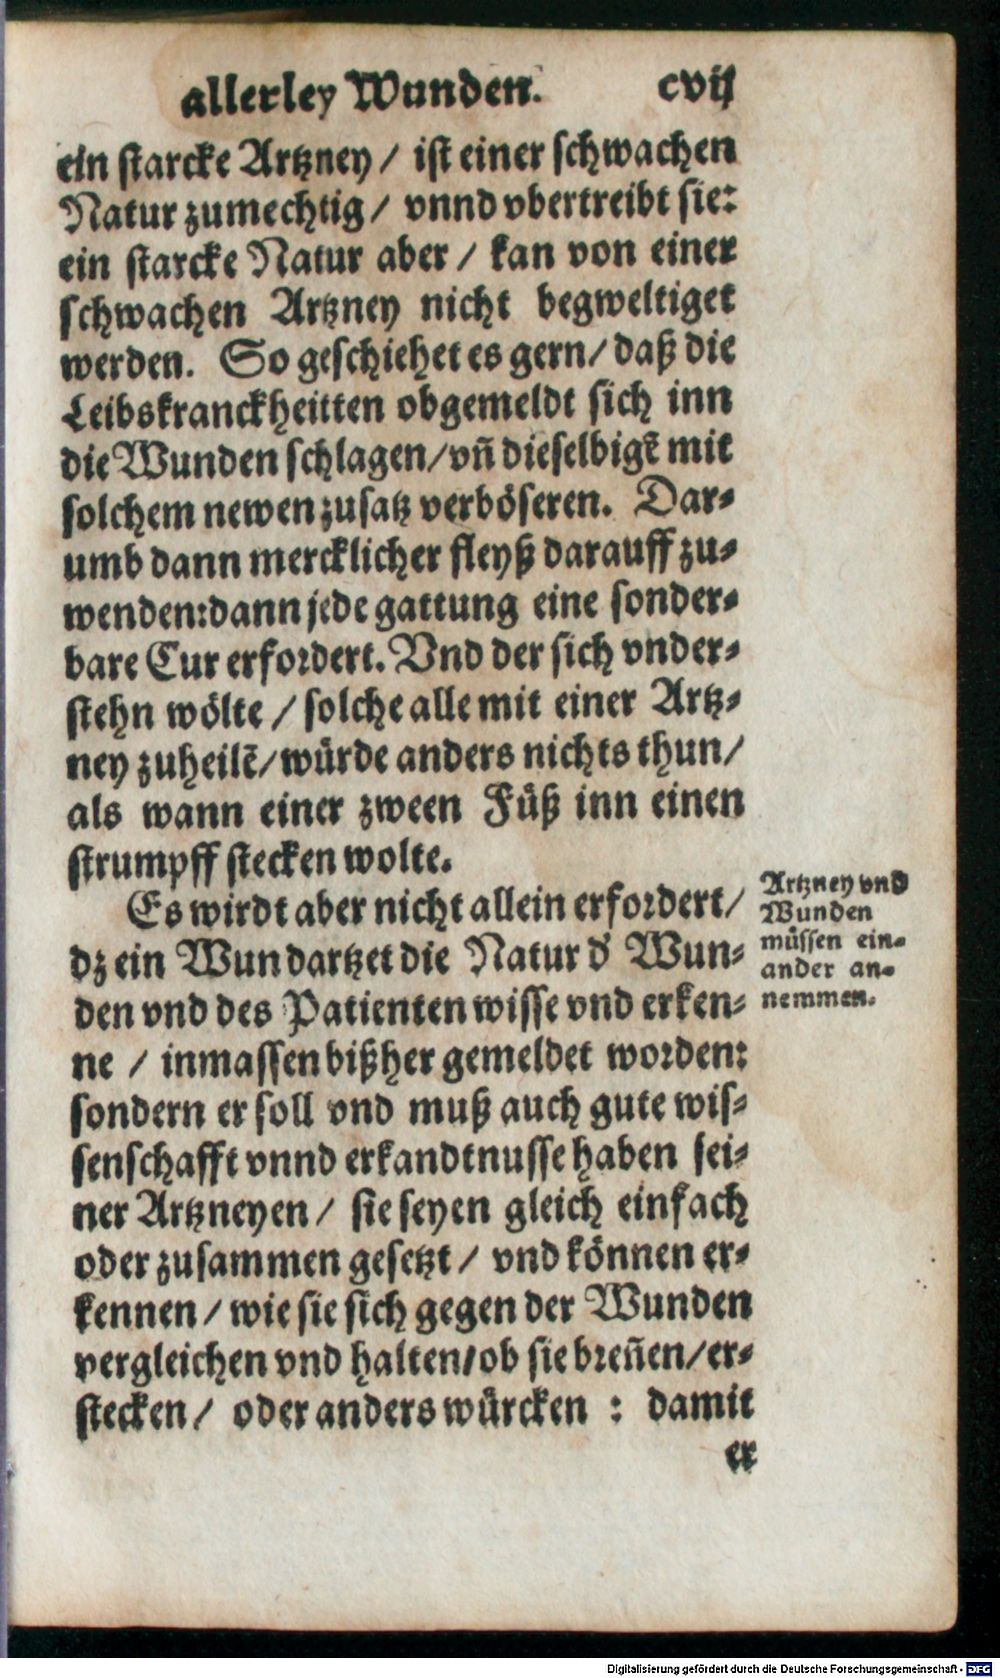 allerley Wunden. cvij
ein starcke Artzney / ist einer schwachen
Natur zumechtig / vnnd vbertreibt sie:
ein starcke Natur aber / kan von einer
schwachen Artzney nicht begweltiget
werden. So geschiehet es gern / daß die
Leibskranckheitten obgemeldt sich inn
die Wunden schlagen / vn̄ dieselbigē mit
solchem newen zusatz verböseren. Dar⸗
umb dann mercklicher fleyß darauff zu⸗
wenden: dann jede gattung eine sonder⸗
bare Cur erfordert. Vnd der sich vnder⸗
stehn wölte / solche alle mit einer Artz⸗
ney zuheilē / würde anders nichts thun /
als wann einer zween Füß inn einen
strumpff stecken wolte.
Es wirdt aber nicht allein erfordert /
dz ein Wundartzet die Natur d' Wun⸗
den vnd des Patienten wisse vnd erken⸗
ne / inmassen bißher gemeldet worden:
sondern er soll vnd muß auch gute wis⸗
senschafft vnnd erkandtnusse haben sei⸗
ner Artzneyen / sie seyen gleich einfach
oder zusammen gesetzt / vnd können er⸗
kennen / wie sie sich gegen der Wunden
vergleichen vnd halten / ob sie breñen / er⸗
stecken / oder anders würcken : damit
er
Artzney vnd
Wunden
müssen ein⸗
ander an⸗
nemmen.
Digitalisierung gefördert durch die Deutsche Forschungsgemeinschaft - DFG